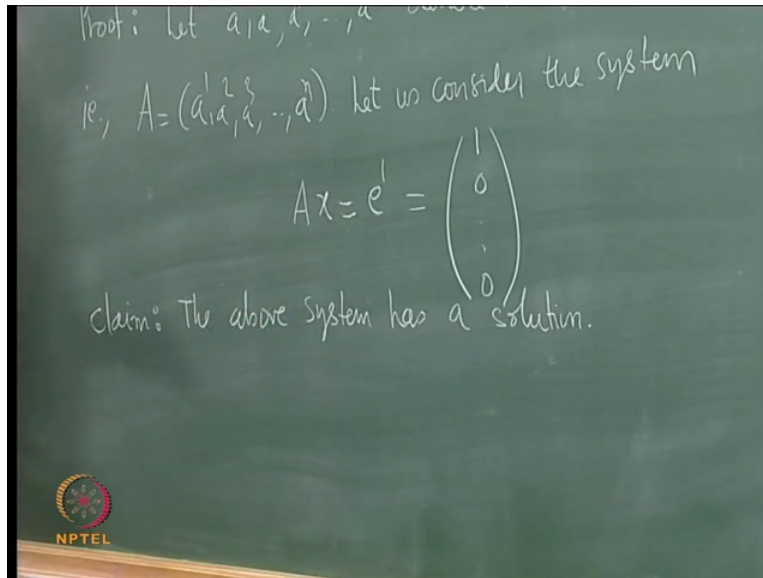 Proof: Let a, a, a, ..., a
ie., A = (a¹, a², a³, .., aⁿ). Let us consider the system
Ax = e¹ = (1
0
.
.
0)
claim: The above system has a solution.
NPTEL